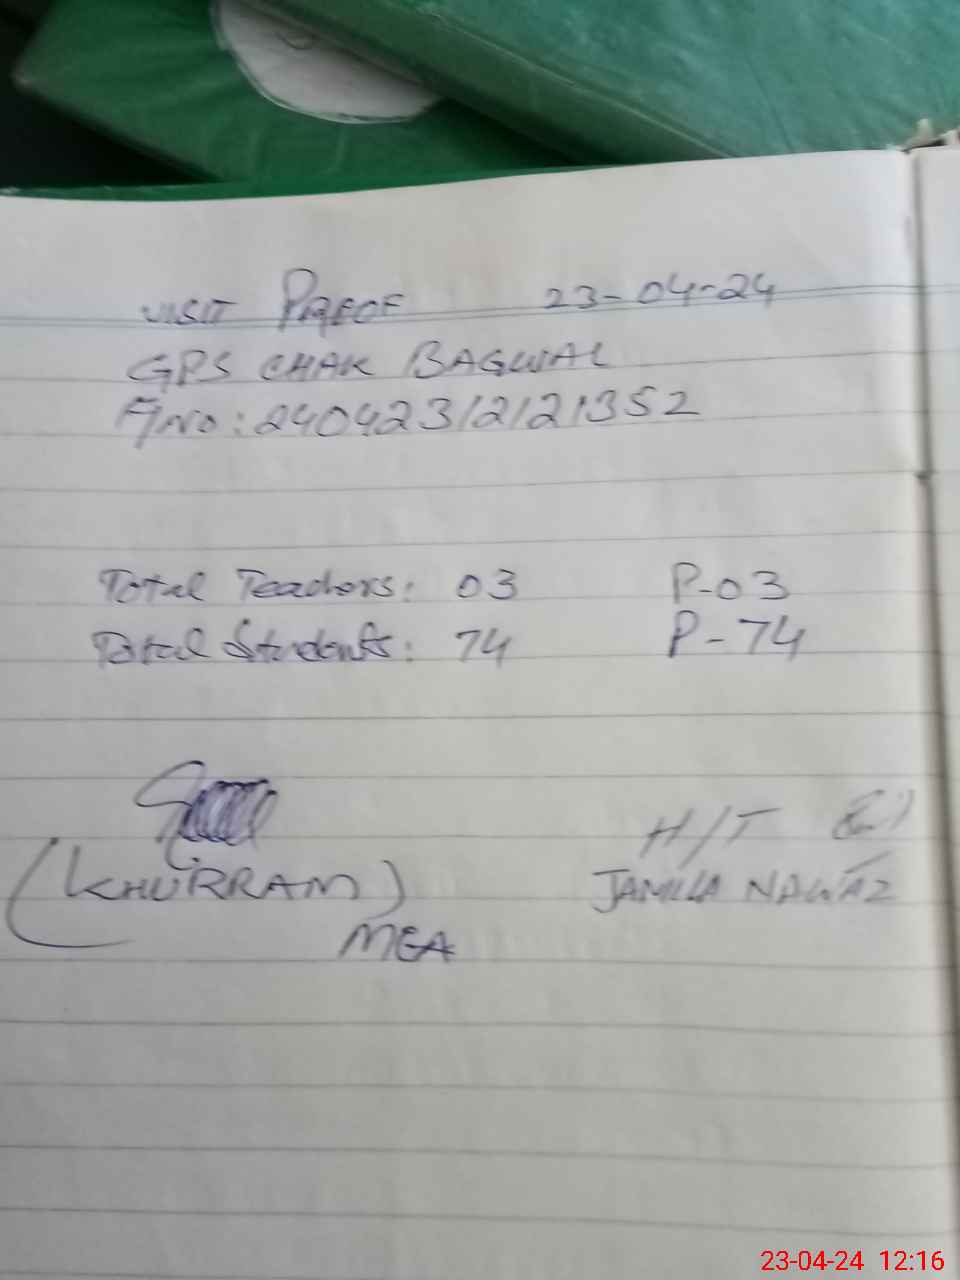 VISIT PROOF 23-04-24
GPS CHAK BAGWAL
A/no: 24042312121352
Total Teachers: 03 P-03
Total Students: 74 P-74
H/T
(KHURRAM) JAMILA NAWAZ
MEA
23-04-24 12:16